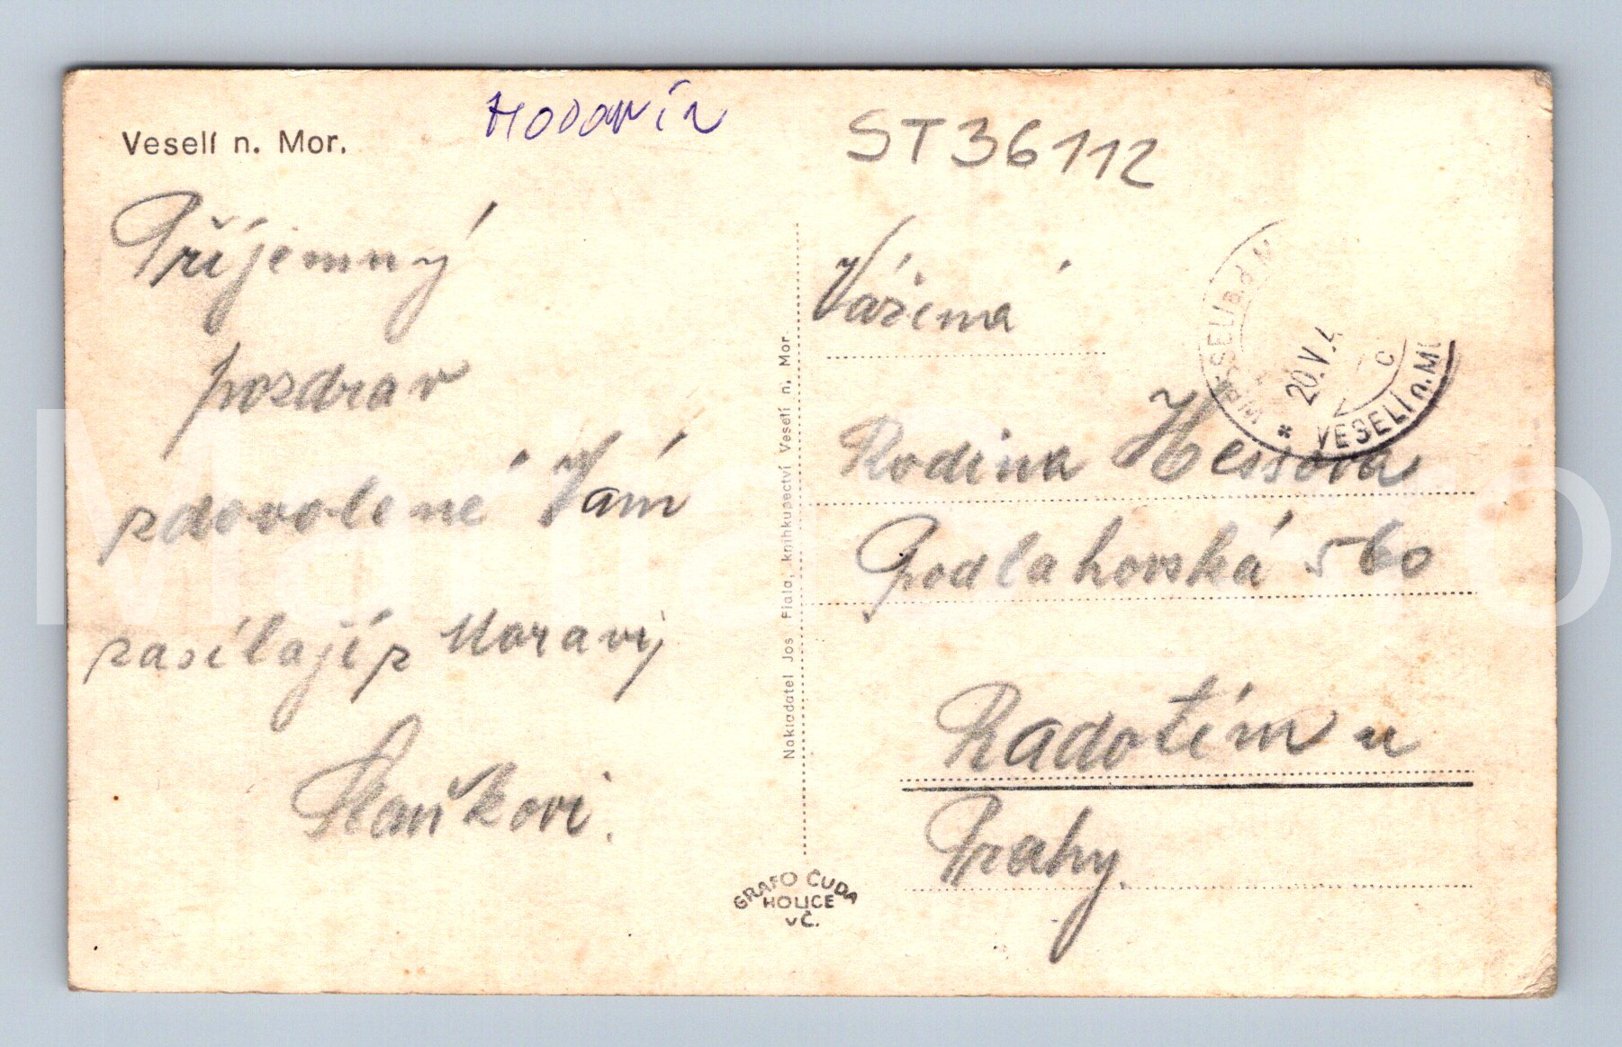 Veselí n. Mor.
HODONÍN
ST36112
Příjemný
pozdrav
z dovolené Vám
zasílají z Moravy
Staňkovi.
Vážená
Rodina Hessova
Podlahovská 560
Radotím u
Prahy.
Nakladatel Jos Fiala, knihkupectví Veselí n. Mor.
GRAFO ČUDA
HOLICE
v Č.
WESSELI a.d. M
20.V.4
VESELÍ n. MO
C